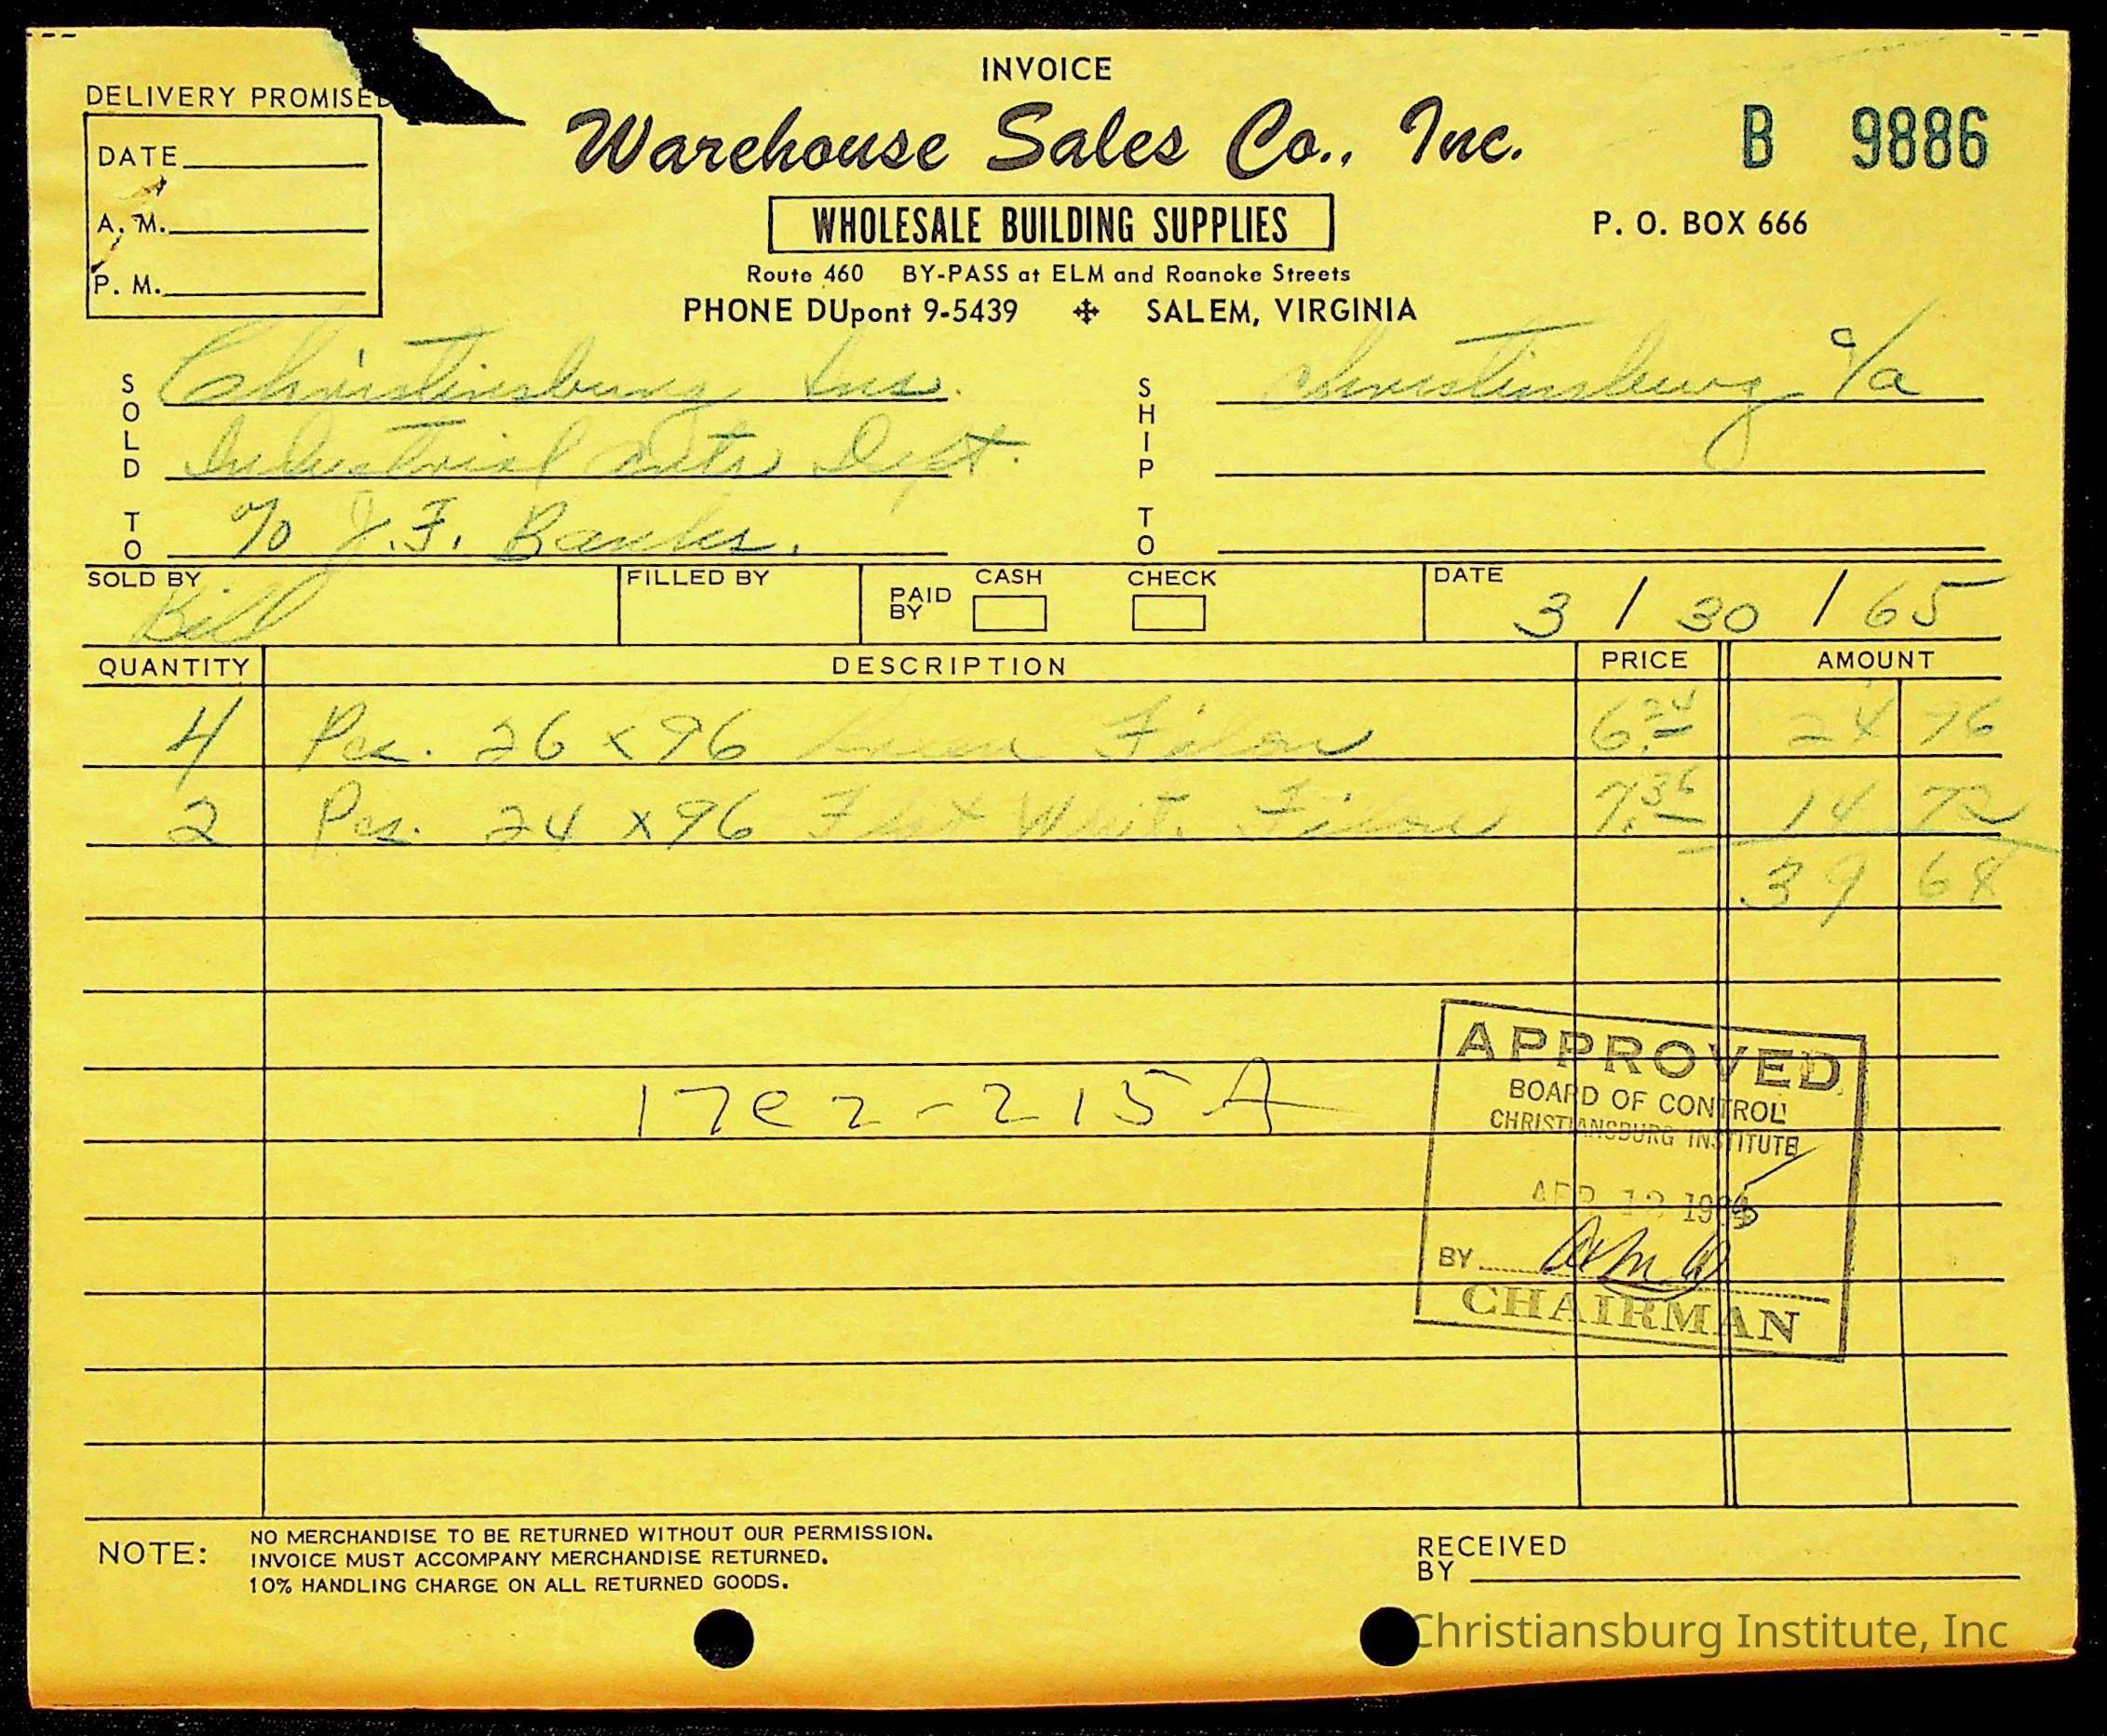 INVOICE
DELIVERY PROMISED
DATE
A. M.
P. M.
Warehouse Sales Co., Inc.
B 9886
WHOLESALE BUILDING SUPPLIES
P. O. BOX 666
Route 460 BY-PASS at ELM and Roanoke Streets
PHONE DUpont 9-5439 SALEM, VIRGINIA
SOLD TO
Christinsburg Ins.
Industrial Arts Dept.
c/o J.F. Banks.
SHIP TO
Christinsburg, Va
SOLD BY
Bill
FILLED BY
PAID BY
CASH
CHECK
DATE
3 / 30 / 65
QUANTITY DESCRIPTION PRICE AMOUNT
4 Pcs. 26 x 96 Filon 6.24 24 96
2 Pcs. 24 x 96 Flat White Filon 7.36 14 72
39 68
17e2-215A
APPROVED
BOARD OF CONTROL
CHRISTIANSBURG INSTITUTE
BY
CHAIRMAN
NOTE:
NO MERCHANDISE TO BE RETURNED WITHOUT OUR PERMISSION.
INVOICE MUST ACCOMPANY MERCHANDISE RETURNED.
10% HANDLING CHARGE ON ALL RETURNED GOODS.
RECEIVED BY
Christiansburg Institute, Inc